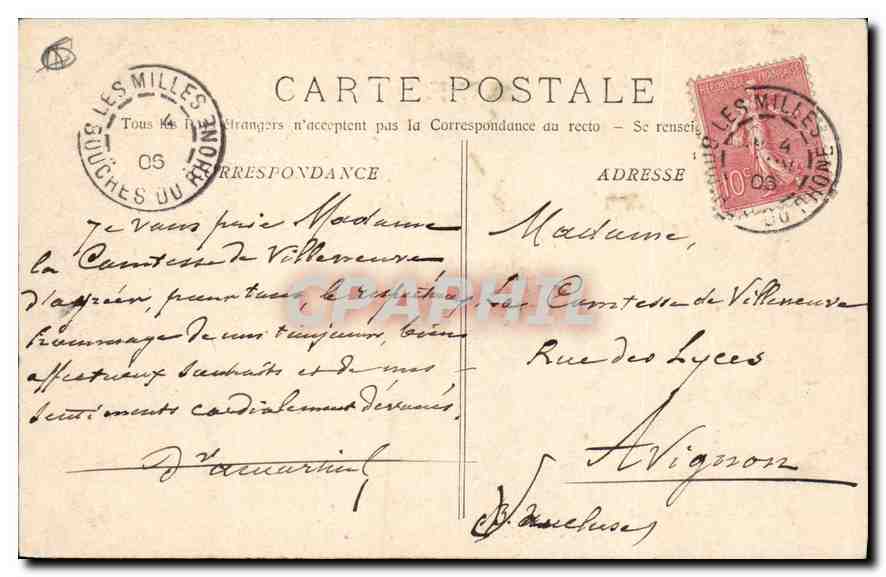 CARTE POSTALE
Tous les Pays étrangers n'acceptent pas la Correspondance au recto – Se renseig
LES MILLES
4
06
BOUCHES DU RHONE
RRESPONDANCE
Je vous prie Madame
la Comtesse de Villeneuve
d'agréer, pour tous, le respectueux
hommage de nos toujours, bien
affectueux souhaits et de nos
sentiments cordialement dévoués,
ADRESSE
LES MILLES
4
06
DU RHONE
10
Madame,
La Comtesse de Villeneuve
Rue des Lyces
Avignon
Vaucluse
GRAPHIL